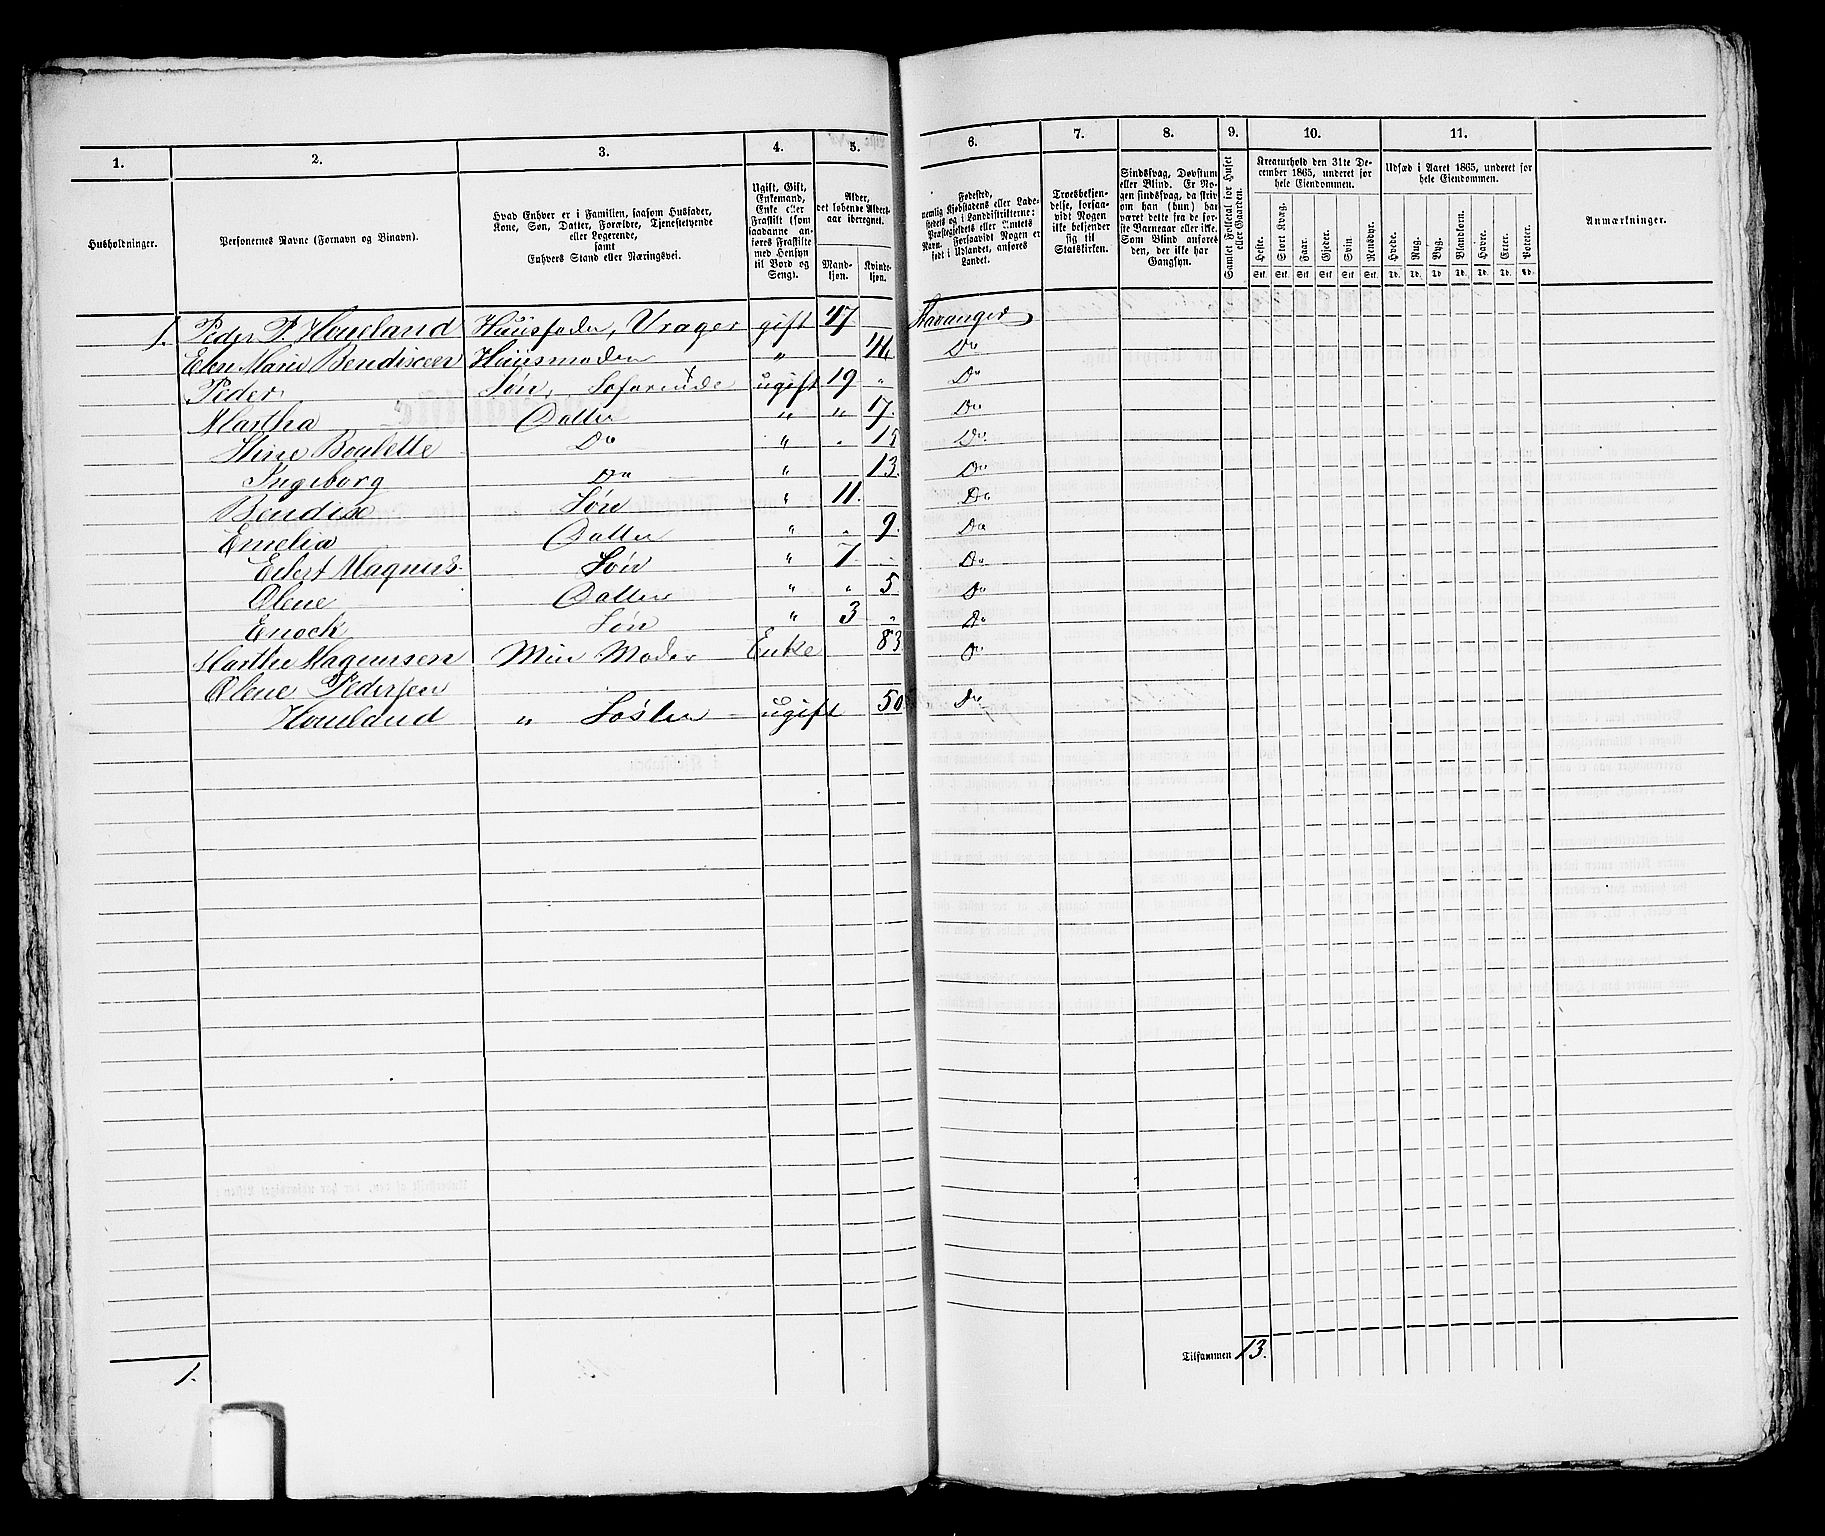 1. 2. 3. 4. 5. 6. 7. 8. 9. 10. 11.
Husholdninger.
Personernes Navne (Fornavn og Binavn).
Hvad Enhver er i Familien, saasom Husfader,
Kone, Søn, Datter, Forældre, Tjenestetyende
eller Logerende,
samt
Enhvers Stand eller Næringsvei.
Ugift, Gift,
Enkemand,
Enke eller
Fraskilt (som
saadanne an-
føres Fraskilte
med Hensyn
til Bord og
Seng).
Alder,
det løbende Alders-
aar iberegnet.
Mand-
kjøn.
Kvinde-
kjøn.
Fødested,
nemlig Kjøbstadens eller Lade-
stedets og i Landdistrikterne:
Præstegjeldets eller Sognets
Navn. Forsaavidt Nogen er
født i Udlandet, anføres
Landet.
Troesbekjen-
delse, forsaa-
vidt Nogen
ikke bekjender
sig til
Statskirken.
Sindssvag, Døvstum
eller Blind. Er No-
gen sindssvag, da skriv
om han (hun) har
været dette fra de før-
ste Barneaar eller ikke.
Som Blind anføres
den, der ikke har
Gangsyn.
Samlet Folketal for Huset
eller Gaarden.
Kreaturhold den 31te De-
cember 1865, underet for
hele Eiendommen.
Heste. Stort Kvæg. Faar. Gjeder. Svin. Rensdyr.
Stk. Stk. Stk. Stk. Stk. Stk.
Udsæd i Aaret 1865, underet for
hele Eiendommen.
Hvede. Rug. Byg. Blandkorn. Havre. Erter. Poteter.
Td. Td. Td. Td. Td. Td. Td.
Anmærkninger.
1. Peder P. Houeland Huusfader, Vrager gift 47 Stavanger
Elen Marie Bendixen Huusmoder " 46 Do
Peder Søn, Søfarende ugift 19 " Do
Martha Datter " " 17. Do
Stine Boulette Do " . 15 Do
Ingeborg Do " 13. Do
Bendix Søn " 11. Do
Emelia Datter " . 9. Do
Eilert Magnus. Søn " 7. . Do
Olene Datter " " 5 Do
Enock Søn " 3 " Do
Marthe Magnusen Min Moder Enke 83 Do
Olene Pedersen
Houeland " Søster ugift 50 Do
Tilsammen 13.
1.